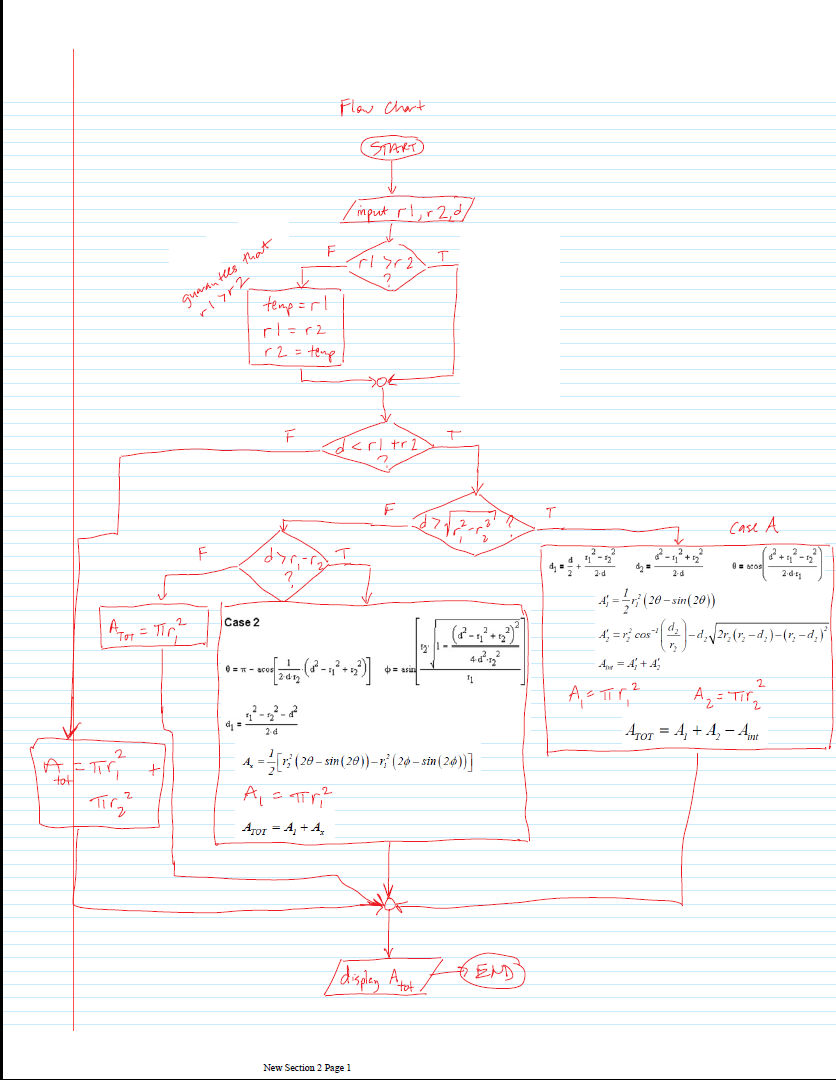 Flow Chart
START
input r1, r2, d
guarantees that
r1 > r2
F
r1 > r2
?
T
temp = r1
r1 = r2
r2 = temp
F
d < r1 + r2
?
T
F
d > √(r₁² - r₂²) ?
T
Case A
F
d > r₁ - r₂
?
T
A_TOT = πr₁²
d₁ = d/2 + (r₁² - r₂²)/(2·d)   d₂ = (d² - r₁² + r₂²)/(2·d)   θ = acos((d² + r₁² - r₂²)/(2·d·r₁))
A₁' = 1/2 r₁² (2θ - sin(2θ))
A₂' = r₂² cos⁻¹(d₂/r₂) - d₂√(2r₂(r₂ - d₂) - (r₂ - d₂)²)
A_int = A₁' + A₂'
A₁ = πr₁²   A₂ = πr₂²
A_TOT = A₁ + A₂ - A_int
Case 2
θ = π - acos[1/(2·d·r₂)·(d² - r₁² + r₂²)]   ϕ = asin[r₂·√(1 - (d² - r₁² + r₂²)²/(4·d²·r₂²))/r₁]
d₁ = (r₁² - r₂² - d²)/(2·d)
Aₓ = 1/2[r₂² (2θ - sin(2θ)) - r₁² (2ϕ - sin(2ϕ))]
A₁ = πr₁²
A_TOT = A₁ + Aₓ
A_tot = πr₁² +
πr₂²
display A_tot
END
New Section 2 Page 1